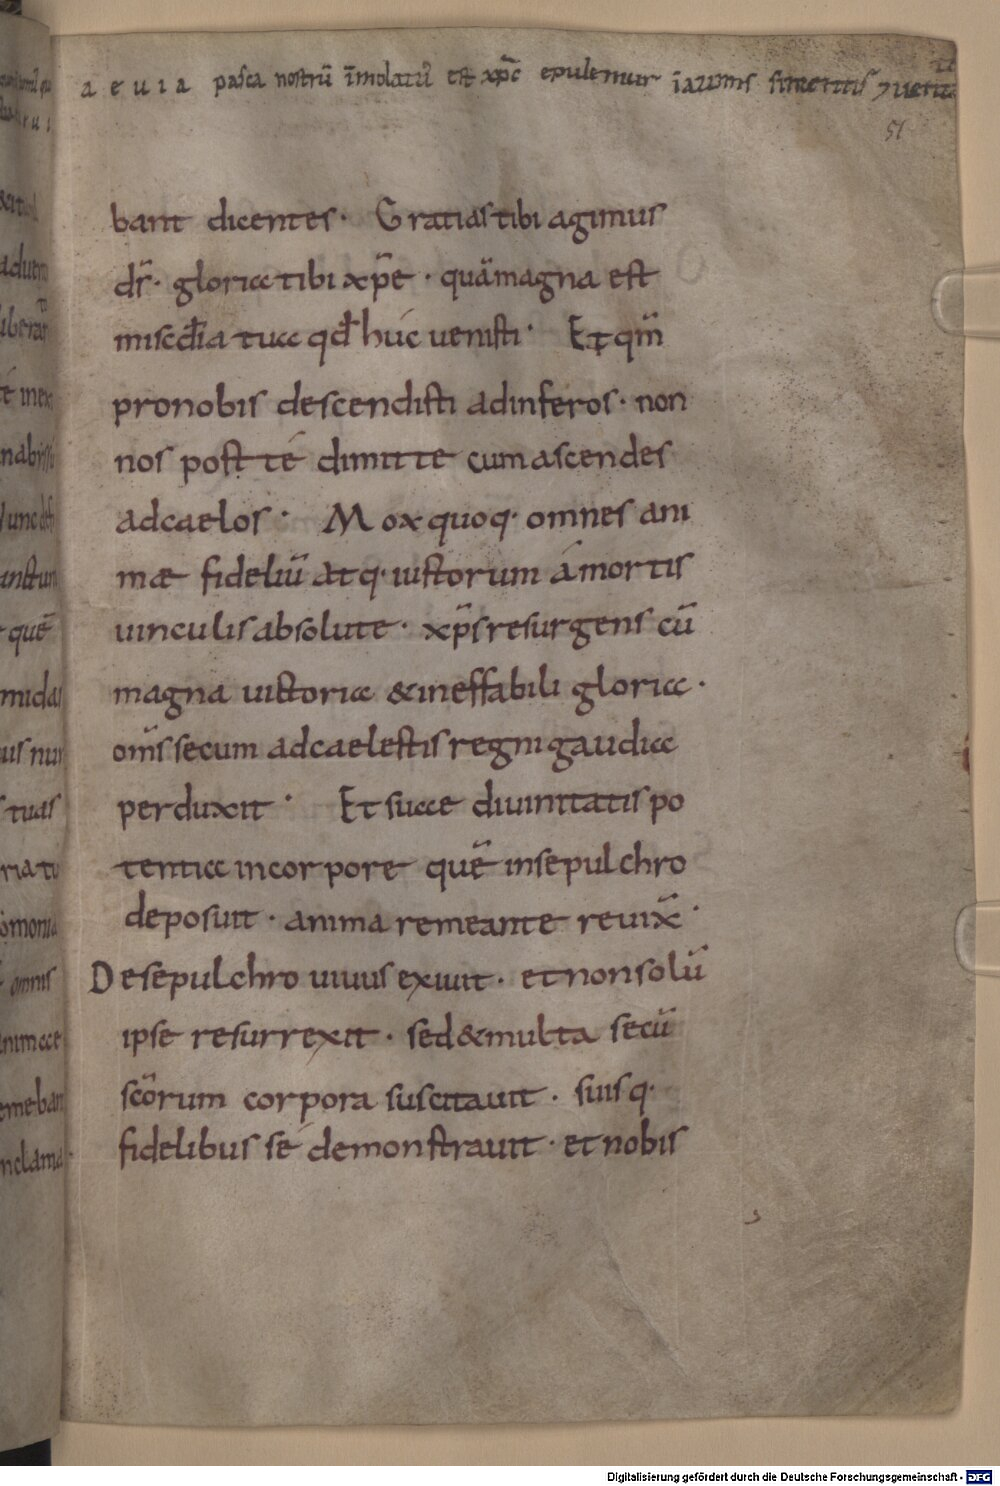 a e u i a pasca nostrū īmolatū est xp̄c epulemur īazimis sinceritatis
51
bant dicentes · Gratias tibi agimus
dr̄ · gloria tibi xp̄e · quā magna est
miscđia tua qđ huc uenisti · Et qm̄
pro nobis descendisti ad inferos · non
nos post té dimitte cum ascendes
ad caelos · Mox quoq· omnes ani
mæ fideliū atq· iustorum á mortis
uinculis absolute · xp̄s resurgens cū
magna uictoria & ineffabili gloria ·
om̄s secum ad caelestis regni gaudia
perduxit · Et suae diuinitatis po
tentia in corpore quē in sepulchro
deposuit · anima remeante reuix̄ ·
De sepulchro uiuus exiuit · et non solū
ipse resurrexit · sed & multa secū
sc̄orum corpora suscitauit · suisq·
fidelibus sé demonstrauit · et nobis
Digitalisierung gefördert durch die Deutsche Forschungsgemeinschaft - DFG